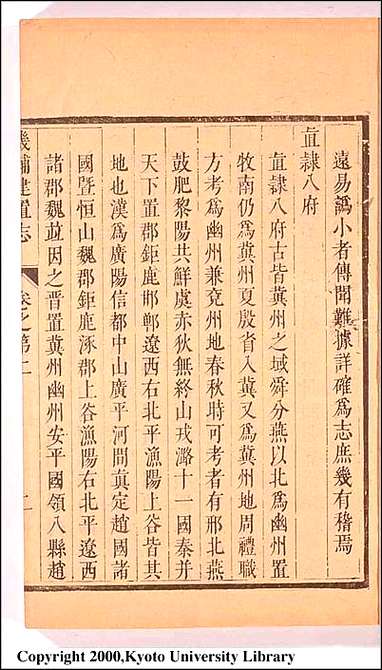 遠易譌小者傳聞難據詳確為志庶幾有稽焉
直隸八府
直隸八府古皆冀州之域舜分燕以北為幽州置
牧南仍為冀州夏殷省入冀又為冀州地周禮職
方考為幽州兼兗州地春秋時可考者有邢北燕
鼓肥黎陽共鮮虞赤狄無終山戎潞十一國秦并
天下置郡鉅鹿邯鄲遼西右北平漁陽上谷皆其
地也漢為廣陽信都中山廣平河間真定趙國諸
國暨恒山魏郡鉅鹿涿郡上谷漁陽右北平遼西
諸郡魏並因之晉置冀州幽州安平國領八縣趙
畿輔建置志
卷之第二
二
Copyright 2000,Kyoto University Library